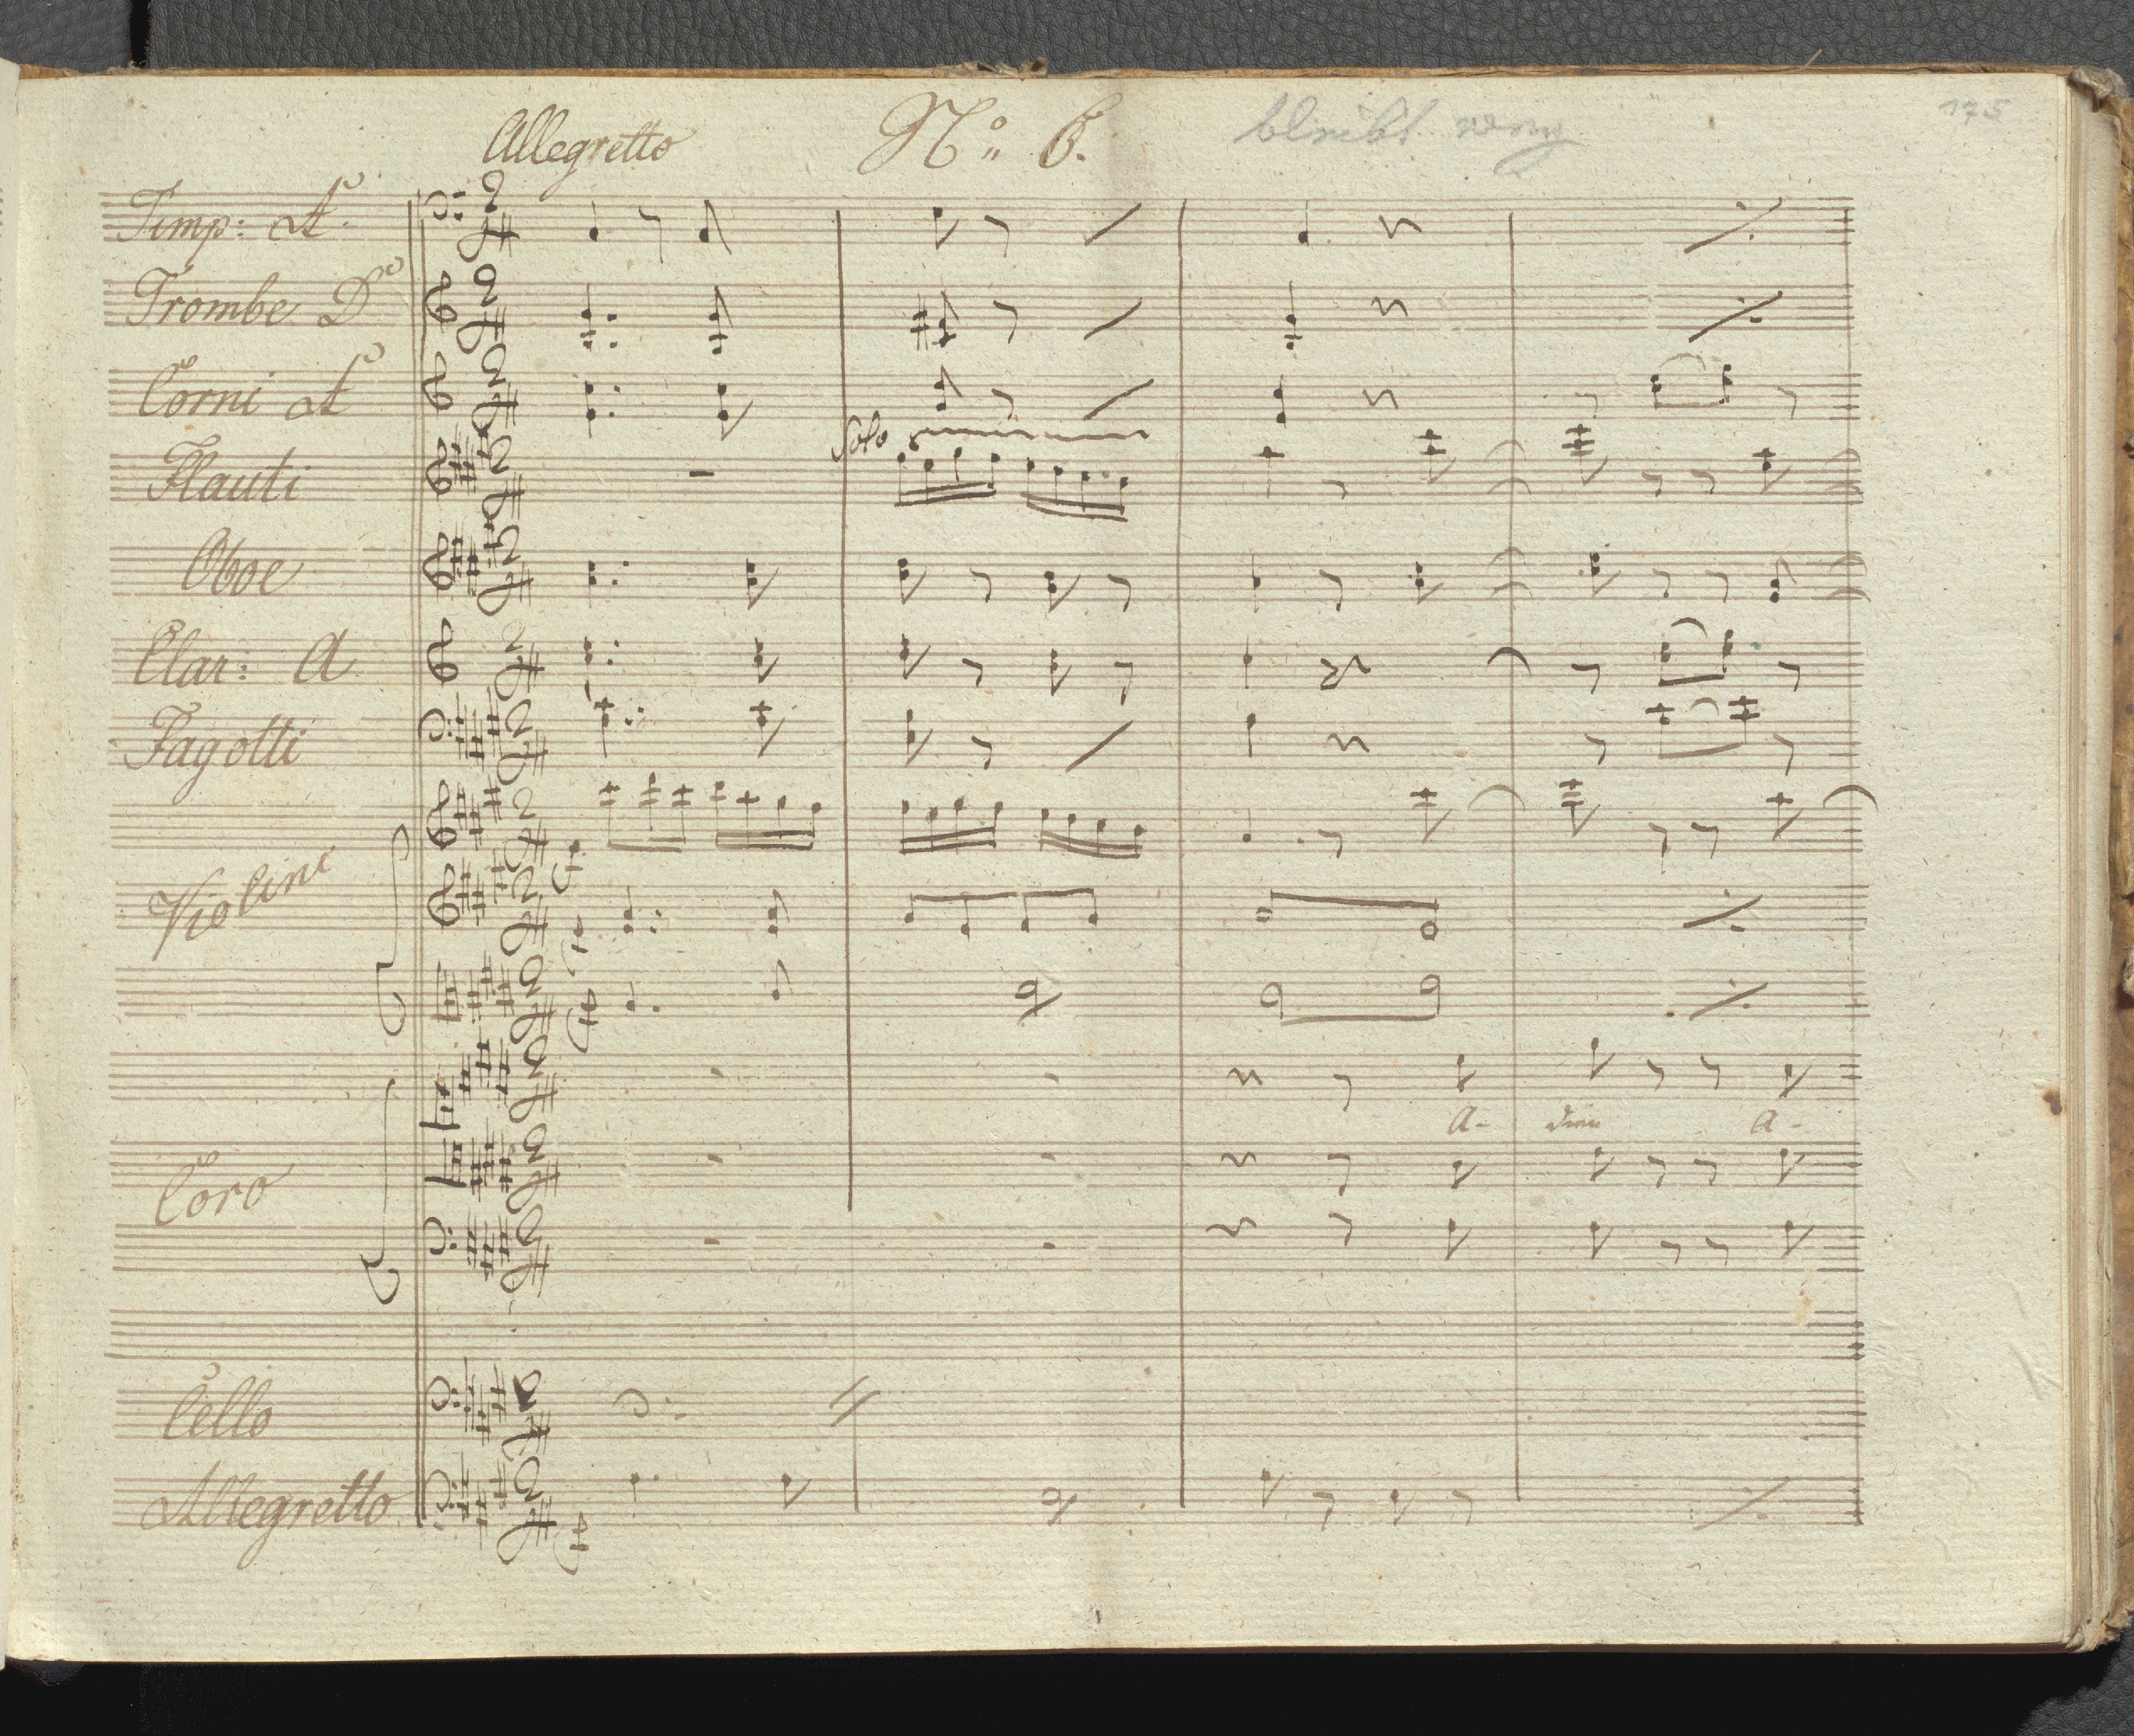 Allegretto No. 6. bleibt weg 175
Timp: A
Trombe D
Corni A
Solo
Flauti
Oboe
Clar: A
Fagotti
Violini
A- dieu A-
Coro
Cello
Allegretto